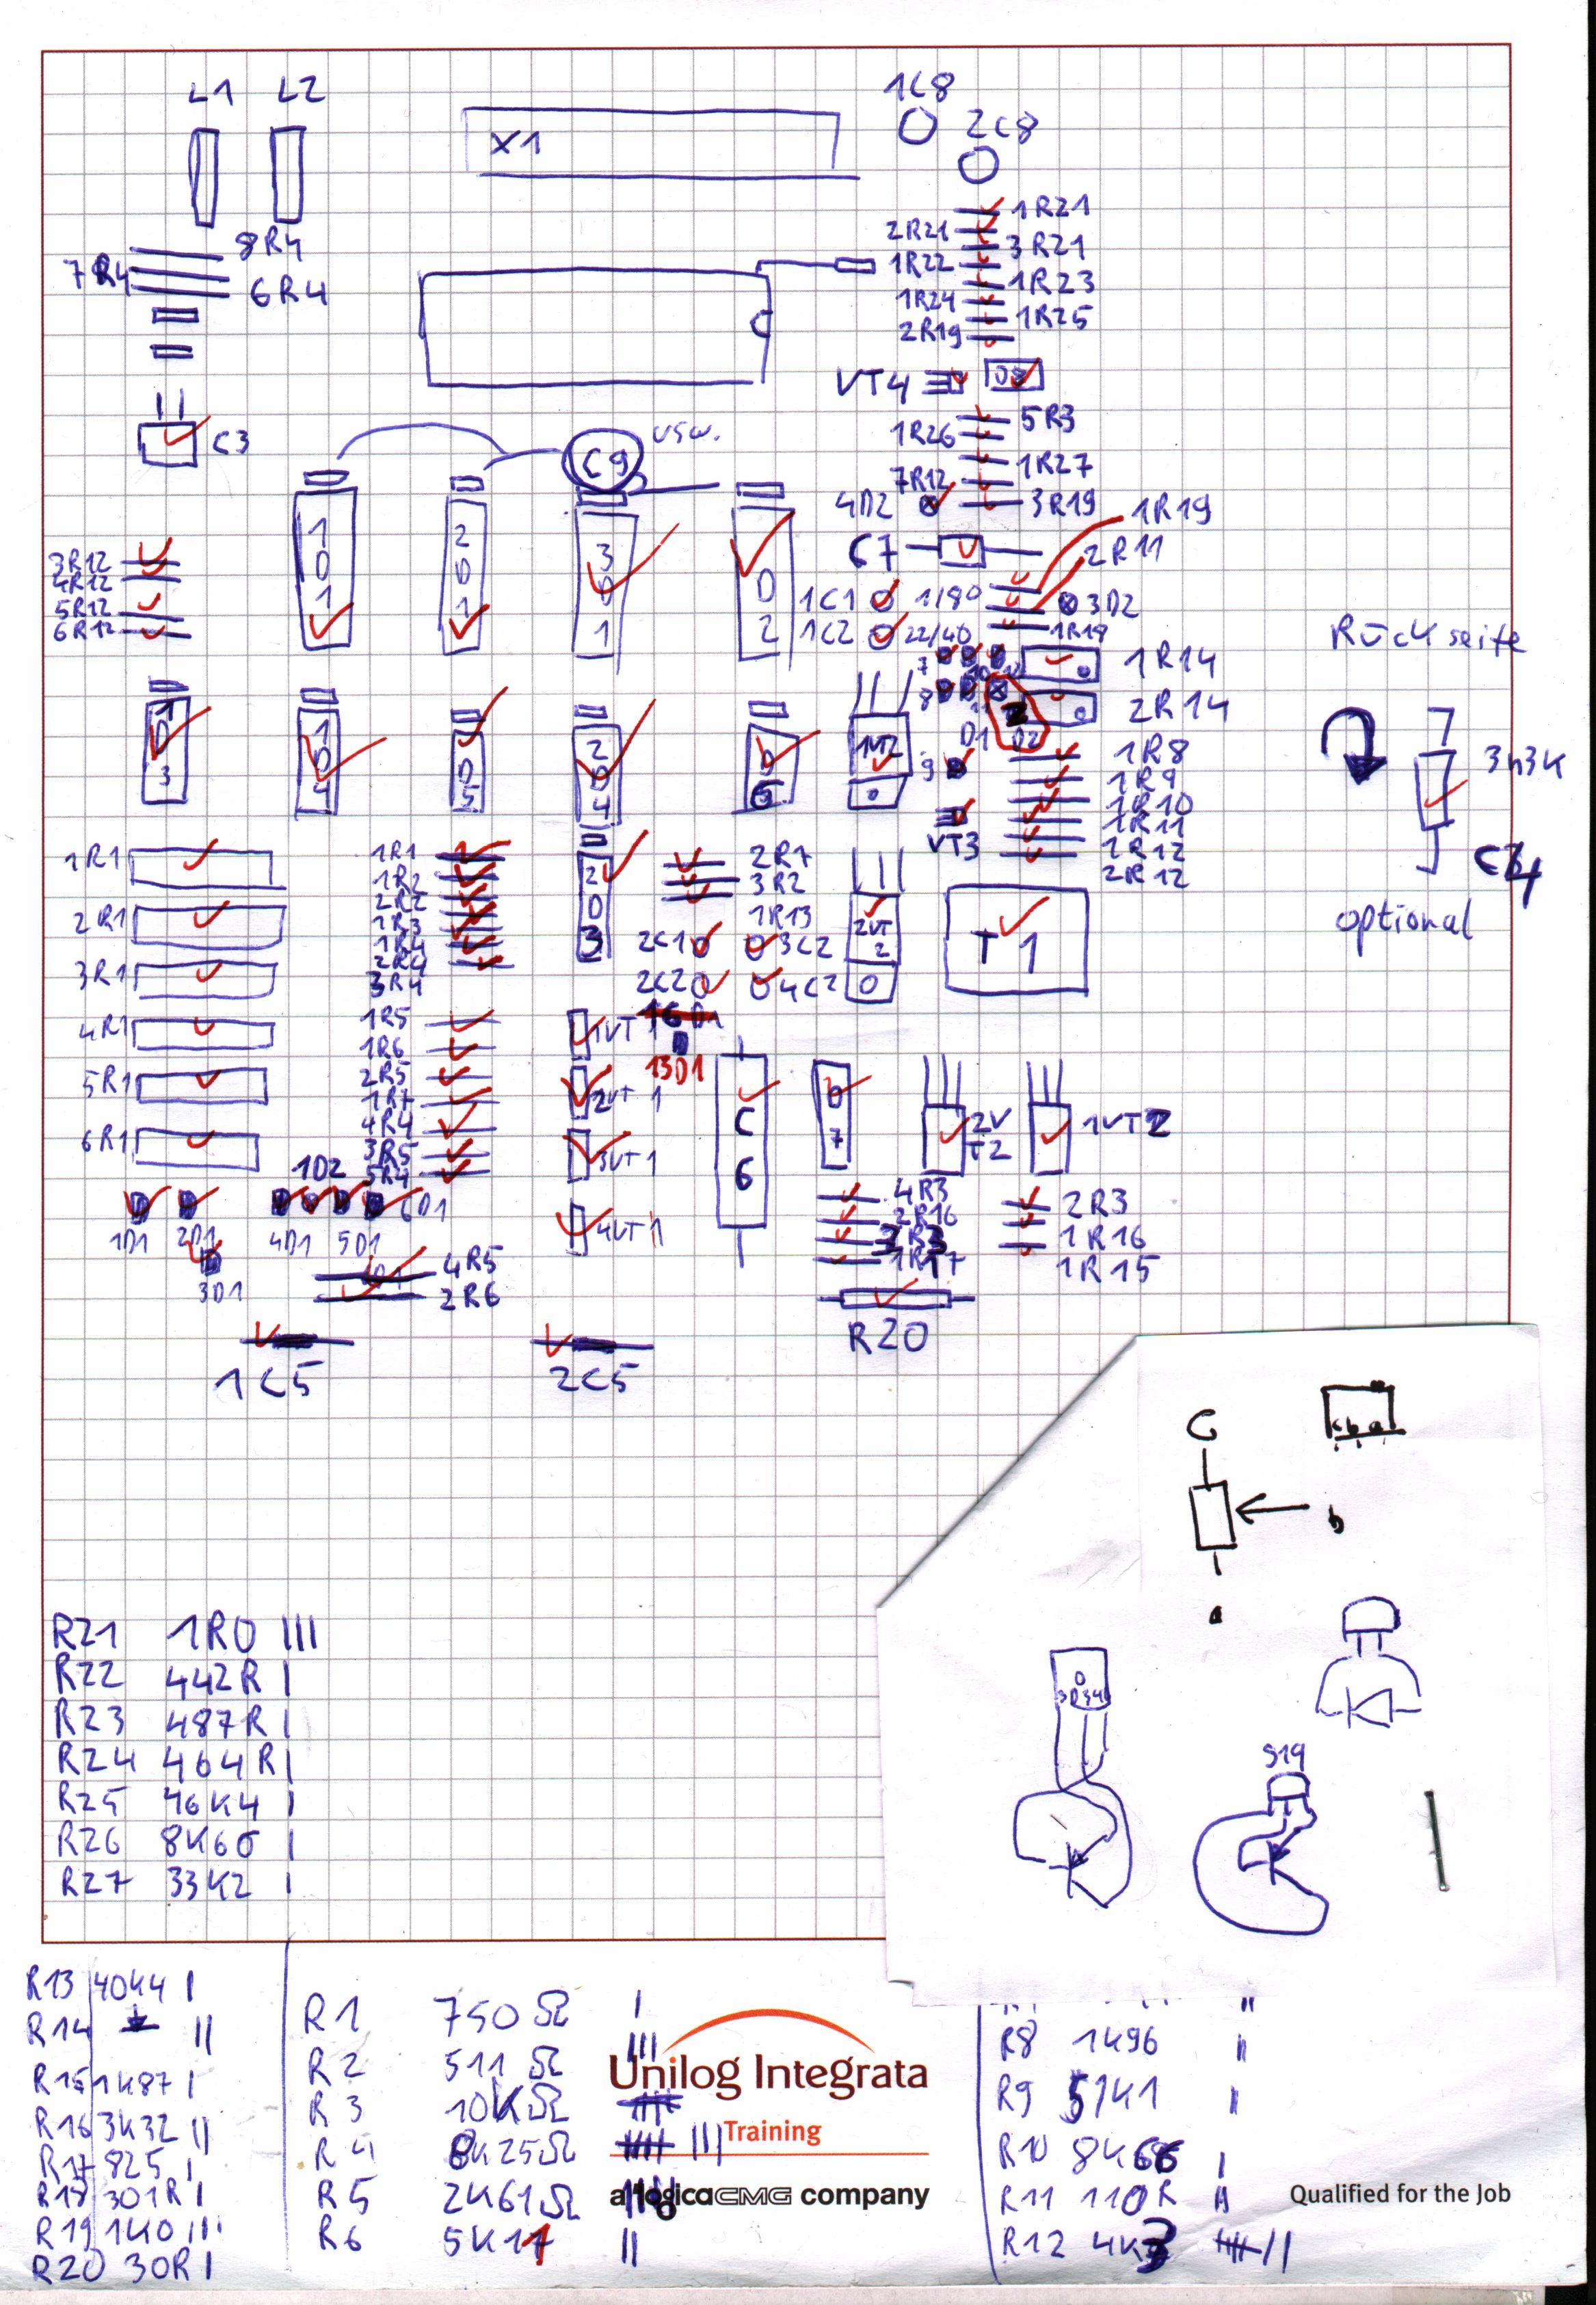 L1 L2
1C8
2C8
X1
1R21
2R21
3R21
8R4
7R4
6R4
1R22
1R23
1R24
1R25
2R19
VT4
C3
C9 usw.
5R3
1R26
1R27
7R12
4D2
3R19
1R19
2R11
C7
1D1
2D1
3D1
D2
3R12
4R12
5R12
6R12
1C1 1/80
3D2
1C2 22/40
1R18
1R14
2R14
Rückseite
D1 D2
7
8
9
1D3
1D4
D5
2D4
D6
1VT2
3n3K
C4
optional
1R8
1R9
1R10
1R11
1R12
2R12
VT3
1R1
2R1
3R1
4R1
5R1
6R1
1R1
1R2
2R2
1R3
1R4
2R4
3R4
2D3
2R7
3R2
1R13
2C1
3C2
2C2
4C2
2VT2
T1
1R5
1R6
2R5
1R7
4R4
3R5
5R4
1VT1
2VT1
3VT1
4VT1
13D1
C6
D7
2VT2
1VT2
1D2
1D1
2D1
3D1
4D1 5D1
6D1
4R5
2R6
4R3
2R16
1R17
2R3
1R16
1R15
R20
1C5
2C5
C
c b a
b
a
S19
R21 1R0 III
R22 442R I
R23 487R I
R24 464R I
R25 46K4 I
R26 8K66 I
R27 33K2 I
R13 40K4 I
R14 II
R15 1K87 I
R16 3K32 II
R17 825 I
R18 301R I
R19 1K0 III
R20 30R I
R1 750Ω I
R2 511Ω III
R3 10KΩ
R4 8K25Ω
R5 2K61Ω
R6 5K11 II
Unilog Integrata
Training
a logicaCMG company
R8 1K96 II
R9 51K1 II
R10 8K66 I
R11 110R II
R12 4K3
Qualified for the Job